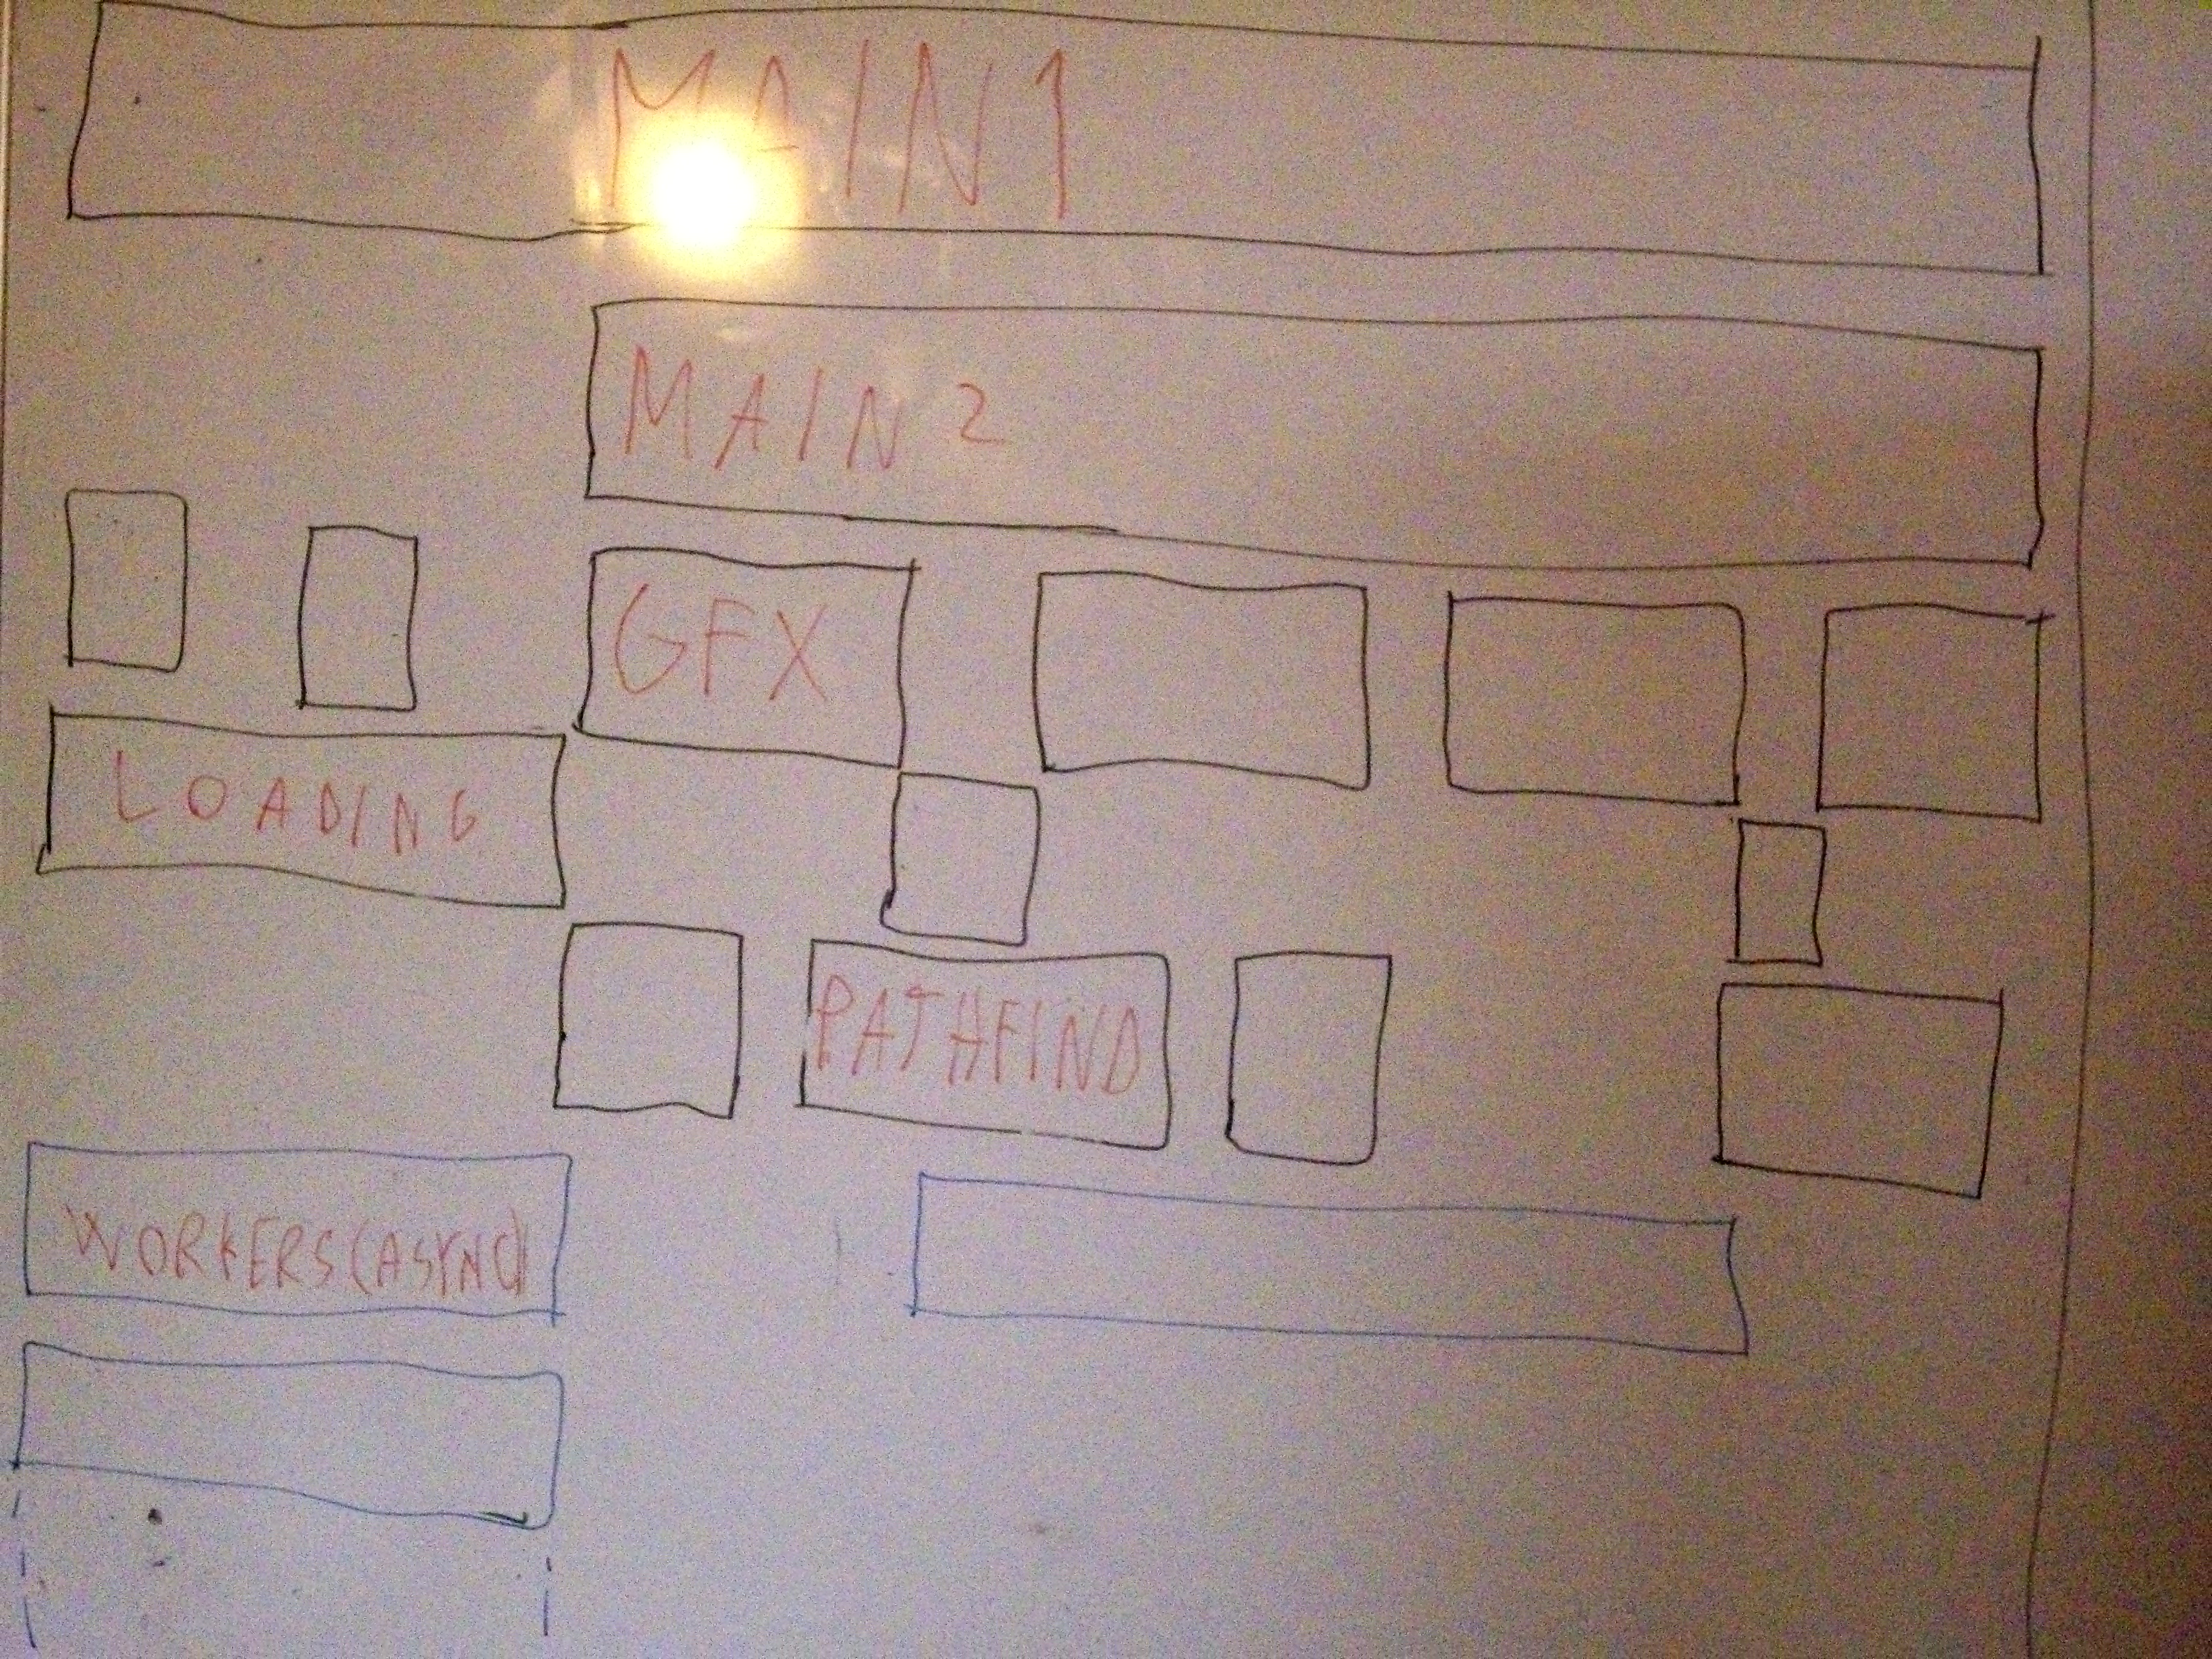 MAIN 1
MAIN 2
GFX
LOADING
PATHFIND
WORKERS(ASYNC)